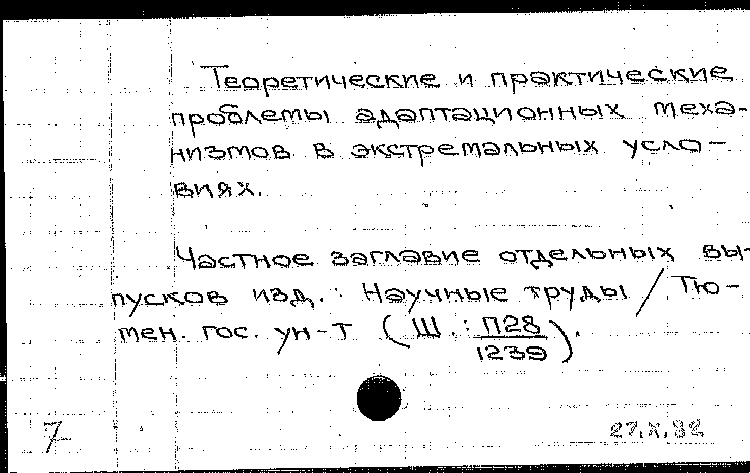 Теоретические и практические
проблемы адаптационных меха-
низмов в экстремальных усло-
виях.
Частное заглавие отдельных вы-
пусков изд.: Научные труды / Тю-
мен. гос. ун-т (Ш.: П28
1239).
7
27.X.82